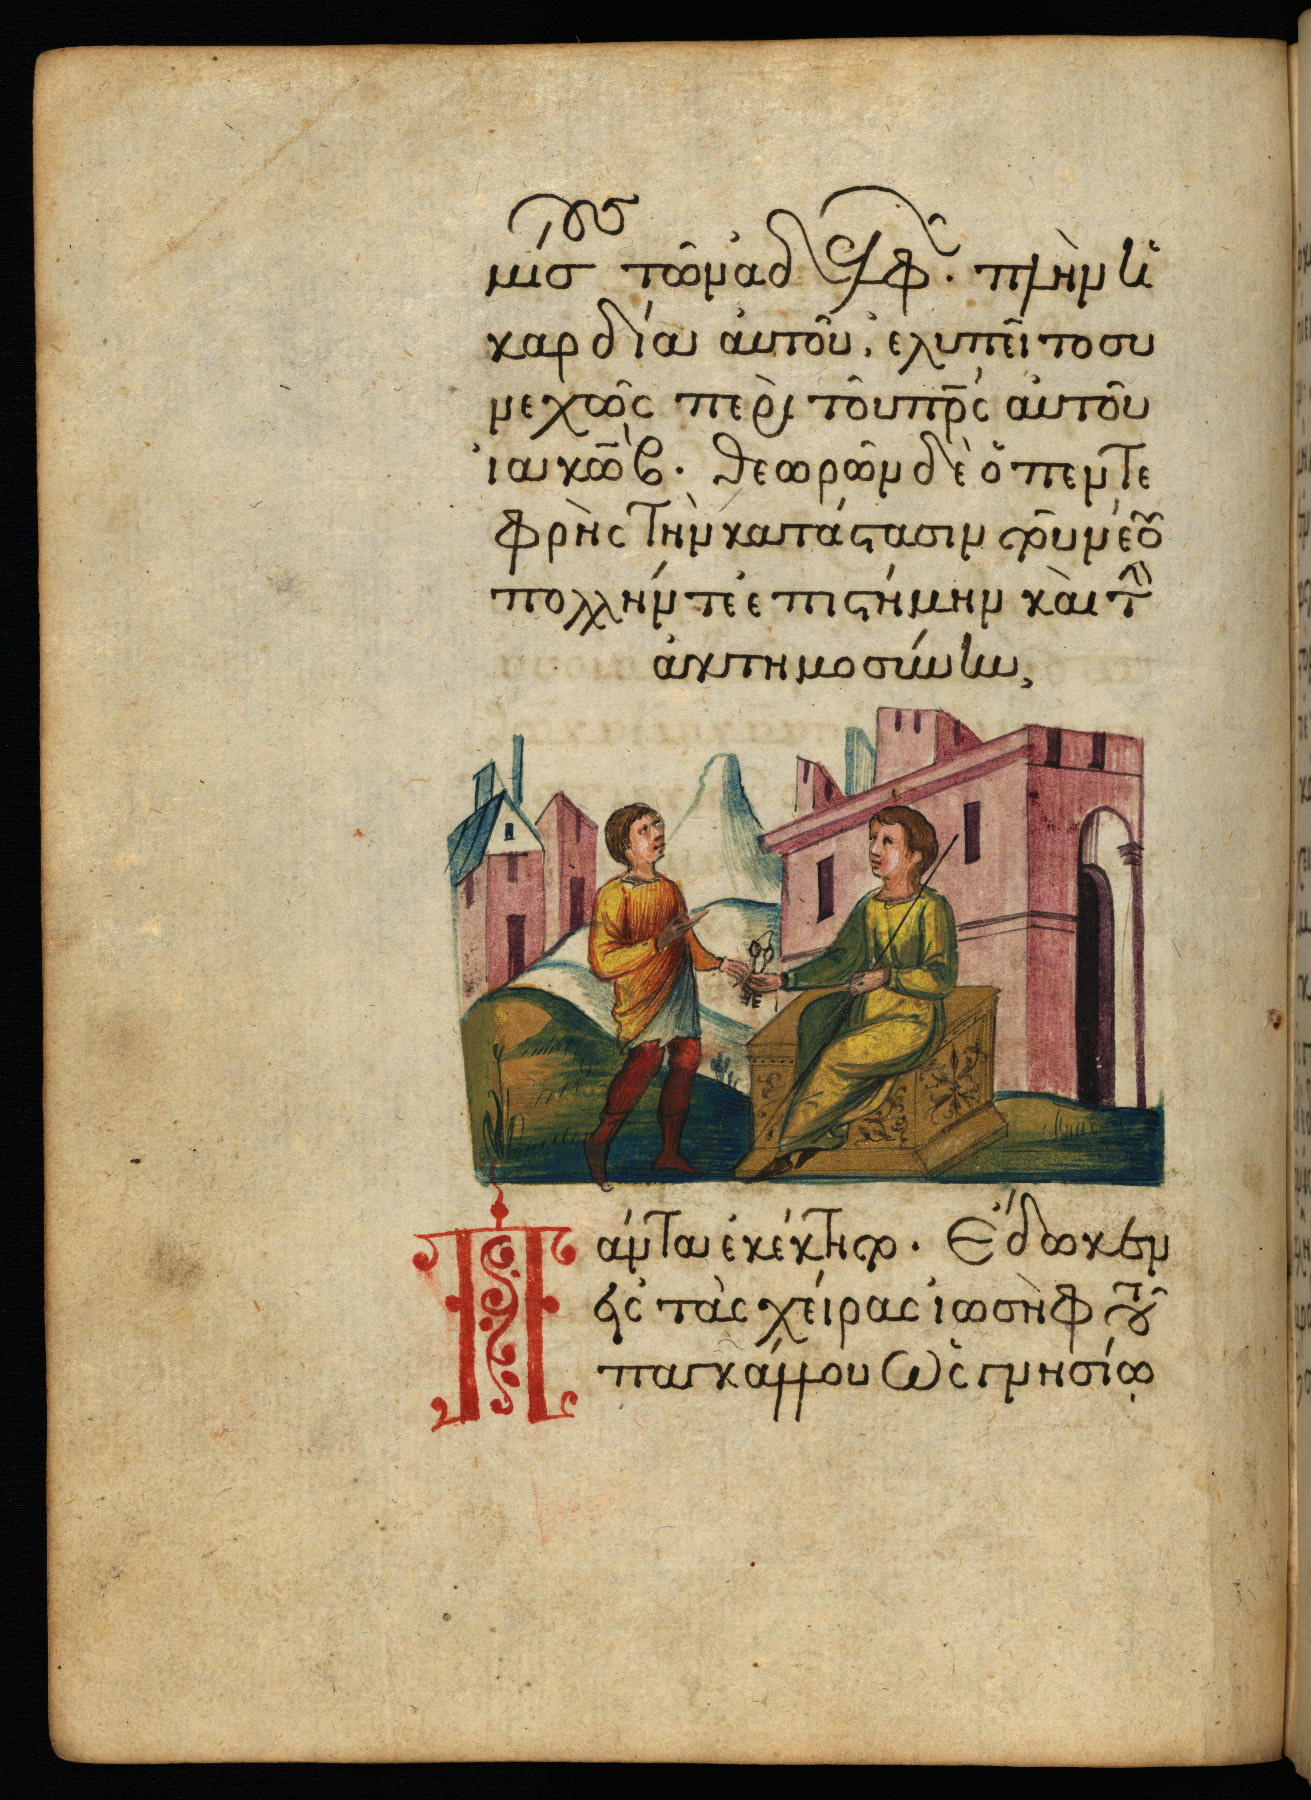 μισ τῶν ἀδ πλὴν
καρδίαι ἀυτοῦ, ἐλυπεῖτο συ
νεχῶς περὶ τοῦ πρ̅ς ἀυτοῦ
ἰακὼβ. θεωρῶν δὲ ὁ πεντε
φρὴς τὴν κατάστασιν
πολλήν τε ἐπιστήμην κὰι τ
ἀκτημοσύνην,
Πάνται ἐκέκτητο. Ἔδωκεν
εἰς τὰς χείρας ἰωσὴφ τοῦ
παγκάλου ὡς γνησίῳ